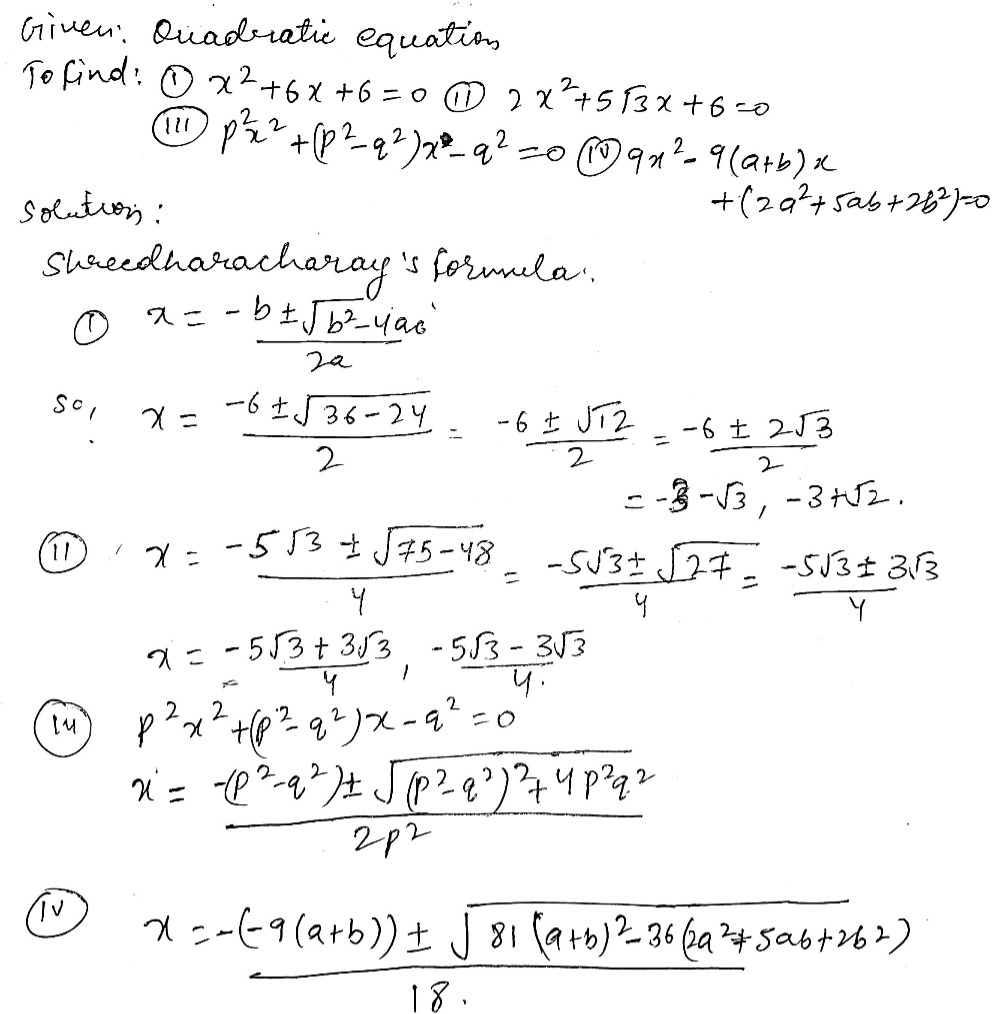 Given: Quadratic equation
To find: (I) x²+6x+6=0 (II) 2x²+5√3x+6=0
(III) p²x²+(p²-q²)x-q²=0 (IV) 9x²-9(a+b)x
+(2a²+5ab+2b²)=0
Solution:
Shreedharacharay's formula:
(I) x = -b±√b²-4ac / 2a
so, x = -6±√36-24 / 2 = -6±√12 / 2 = -6±2√3 / 2
= -3-√3, -3+√2.
(II) x = -5√3±√75-48 / 4 = -5√3±√27 / 4 = -5√3±3√3 / 4
x = -5√3+3√3 / 4, -5√3-3√3 / 4.
(III) p²x²+(p²-q²)x-q²=0
x = -(p²-q²)±√(p²-q²)²+4p²q² / 2p²
(IV) x = -(-9(a+b))±√81(a+b)²-36(2a²+5ab+2b²) / 18.